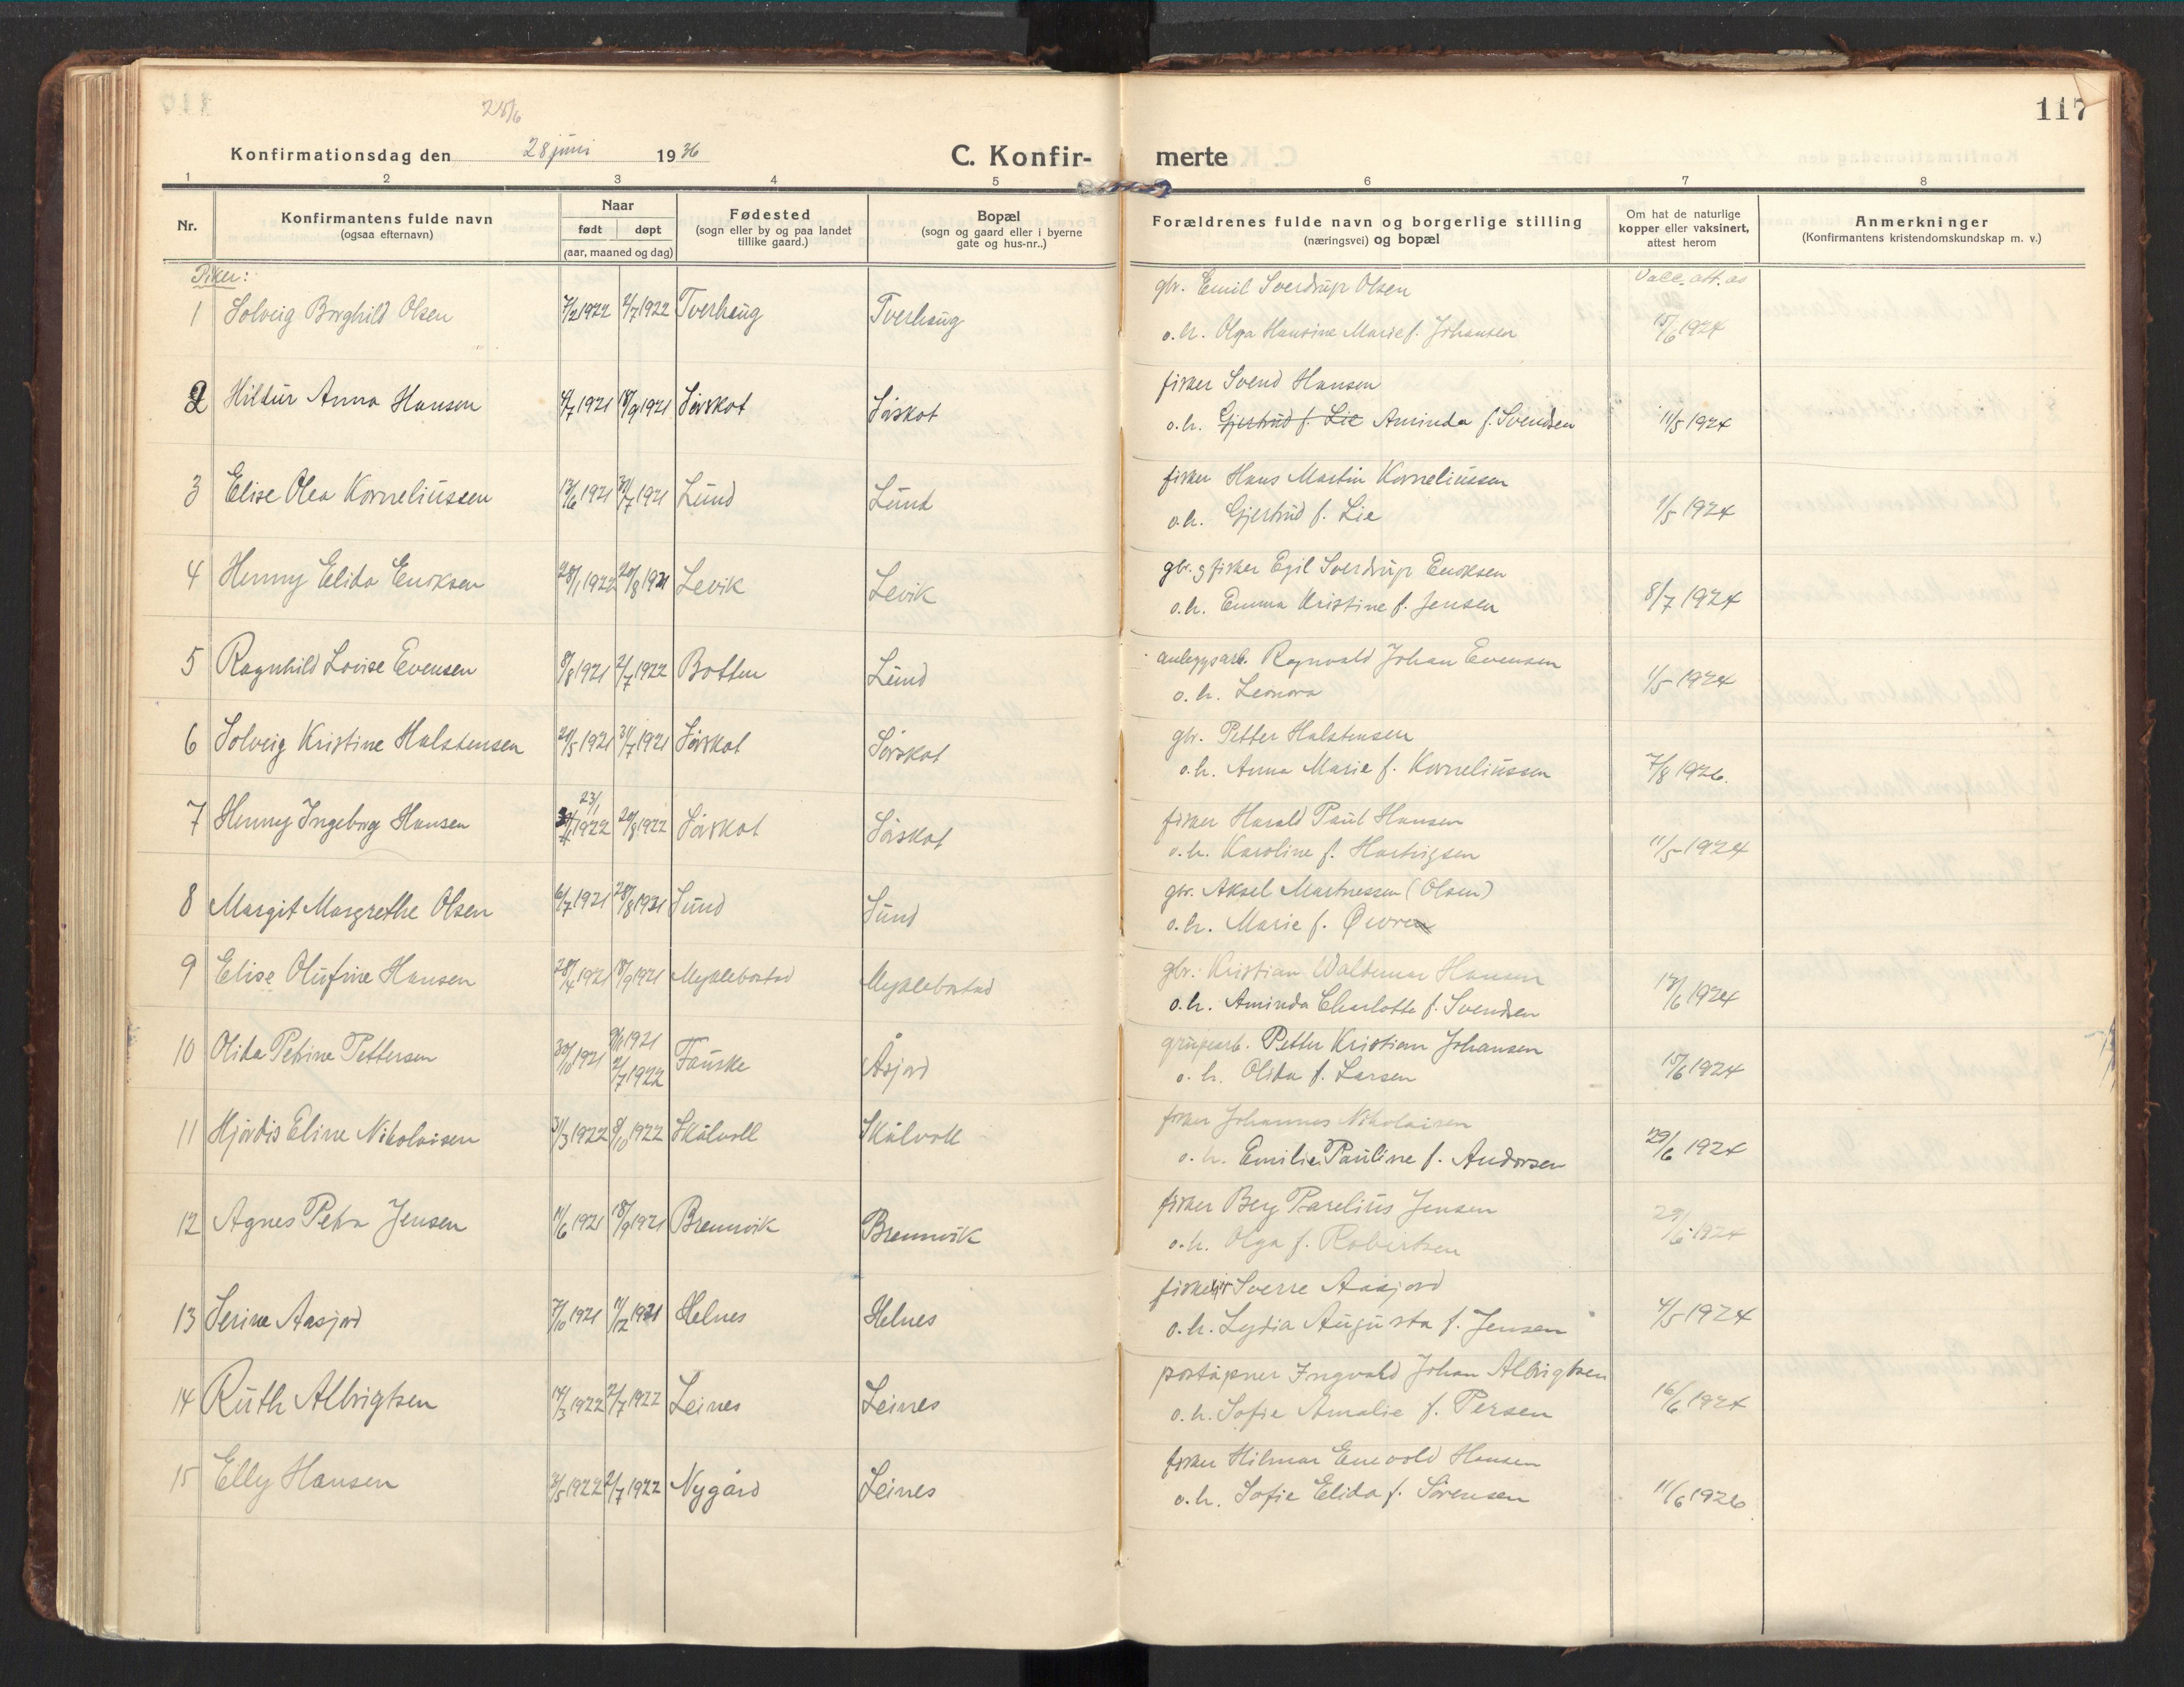 117
28/6
Konfirmationsdag den 28 juni 1936
C. Konfirmerte
1 2 3 4 5 6 7 8
Nr.
Konfirmantens fulde navn
(ogsaa efternavn)
Naar
født døpt
(aar, maaned og dag)
Fødested
(sogn eller by og paa landet
tillike gaard.)
Bopæl
(sogn og gaard eller i byerne
gate og hus-nr..)
Forældrenes fulde navn og borgerlige stilling
(næringsvei) og bopæl
Om hat de naturlige
kopper eller vaksinert,
attest herom
Anmerkninger
(Konfirmantens kristendomskundskap m. v.)
Piker:
1 Solveig Borghild Olsen 7/2 1922 2/7 1922 Tverhaug Tverhaug
gbr. Emil Sverdrup Olsen
o.h. Olga Hansine Marie f. Johansen
Vacc. att. av
15/6 1924
2 Hildur Anna Hansen 4/7 1921 18/9 1921 Sørskot Sørskot
fisker Svend Hansen
o.h. Gjertrud f. Lie Aminda f. Svendsen 11/5 1924
3 Elise Olea Korneliussen 13/6 1921 31/7 1921 Lund Lund
fisker Hans Martin Korneliussen
o.h. Gjertrud f. Lie 1/5 1924
4 Henny Elida Enoksen 28/1 1922 20/8 1921 Levik Levik
gbr. og fisker Egil Sverdrup Enoksen
o.h. Emma Kristine f. Jensen 8/7 1924
5 Ragnhild Lovise Evensen 8/8 1921 2/7 1922 Botten Lund
anleggsarb. Ragnvald Johan Evensen
o.h. Leonora 1/5 1924
6 Solveig Kristine Halstensen 20/5 1921 31/7 1921 Sørskot Sørskot
gbr. Petter Halstensen
o.h. Anna Marie f. Korneliussen 7/8 1926.
7 Henny Ingeborg Hansen 23/1 1922 20/8 1922 Sørskot Sørskot
fisker Harald Paul Hansen
o.h. Karoline f. Hartvigsen 11/5 1924
8 Margit Margrethe Olsen 6/7 1921 28/8 1921 Sund Sund
gbr. Aksel Martnessen (Olsen)
o.h. Marie f.
9 Elise Olufine Hansen 28/4 1921 18/9 1921 Myklebostad Myklebostad
gbr. Kristian Waldemar Hansen
o.h. Aminda Charlotte f. Svendsen 13/6 1924
10 Olida Petrine Pettersen 30/10 1921 1921 2/7 1922 Fauske Åsjord
grubearb. Petter Kristian Johansen
o.h. Olida f. Larsen 15/6 1924
11 Hjørdis Eline Nikolaisen 31/3 1922 8/10 1922 Skålvoll Skålvoll
fisker Johannes Nikolaisen
o.h. Emilie Pauline f. Andorsen 29/6 1924
12 Agnes Petra Jensen 11/6 1921 18/9 1921 Brennvik Brennvik
fisker Berg Parelius Jensen
o.h. Olga f. Robertsen 29/6 1924
13 Serine Aasjord 7/10 1921 11/12 1921 Helnes Helnes
Sverre Aasjord
o.h. Lydia Augusta f. Jensen 4/5 1924
14 Ruth Albrigtsen 14/3 1922 2/7 1922 Leines Leines
poståpner Ingvald Johan Albrigtsen
o.h. Sofie Amalie f. Persen 16/6 1924
15 Elly Hansen 3/5 1922 2/7 1922 Nygård Leines
fisker Hilmar Enevold Hansen
o.h. Sofie Elida f. Sørensen 11/6 1926